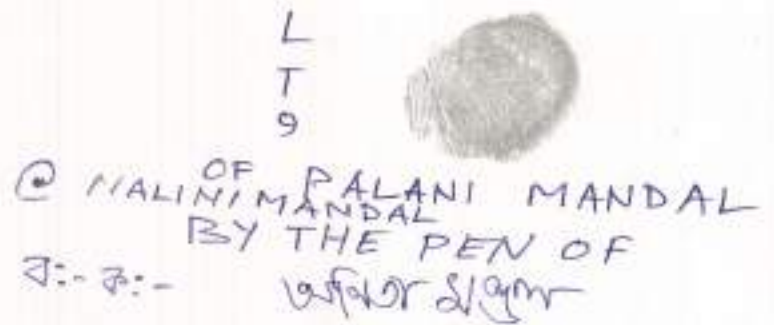 L
T
9
OF PALANI MANDAL
@ NALINI MANDAL
BY THE PEN OF
ব:- ক:-